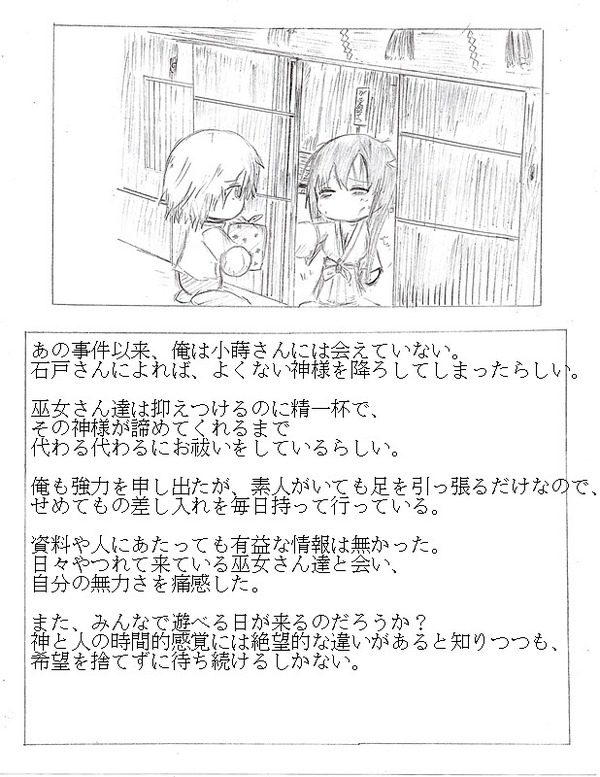 あの事件以来、俺は小蒔さんには会えていない。
石戸さんによれば、よくない神様を降ろしてしまったらしい。
巫女さん達は抑えつけるのに精一杯で、
その神様が諦めてくれるまで
代わる代わるにお祓いをしているらしい。
俺も強力を申し出たが、素人がいても足を引っ張るだけなので、
せめてもの差し入れを毎日持って行っている。
資料や人にあたっても有益な情報は無かった。
日々やつれて来ている巫女さん達と会い、
自分の無力さを痛感した。
また、みんなで遊べる日が来るのだろうか？
神と人の時間的感覚には絶望的な違いがあると知りつつも、
希望を捨てずに待ち続けるしかない。